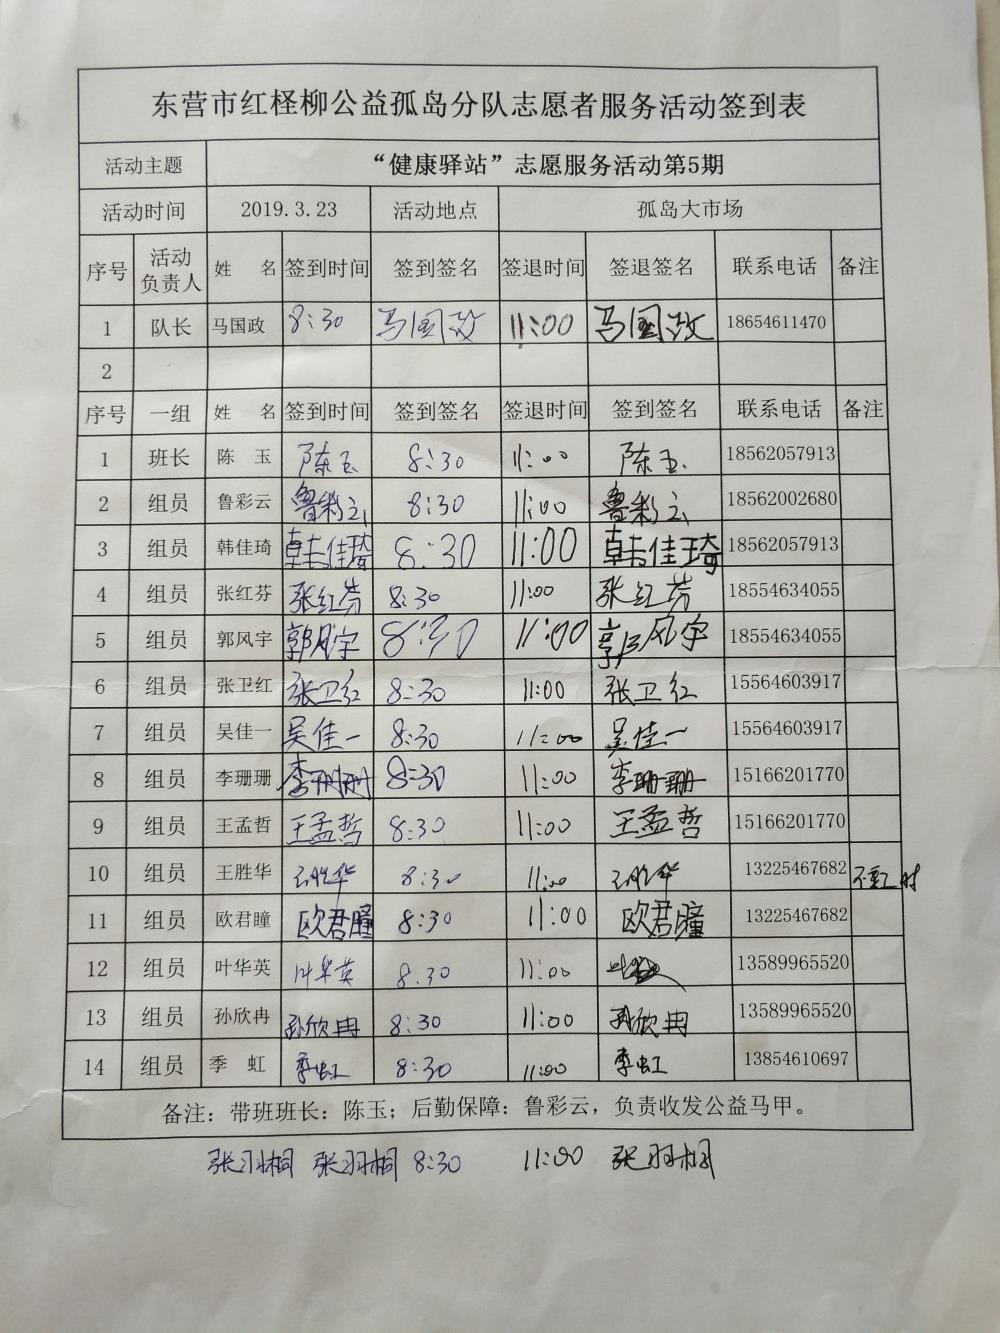 东营市红柽柳公益孤岛分队志愿者服务活动签到表
活动主题 “健康驿站”志愿服务活动第5期
活动时间 2019.3.23 活动地点 孤岛大市场
序号 活动负责人 姓 名 签到时间 签到签名 签退时间 签退签名 联系电话 备注
1 队长 马国政 8:30 马国政 11:00 马国政 18654611470
2
序号 一组 姓 名 签到时间 签到签名 签退时间 签到签名 联系电话 备注
1 班长 陈 玉 陈玉 8:30 11:00 陈玉 18562057913
2 组员 鲁彩云 鲁彩云 8:30 11:00 鲁彩云 18562002680
3 组员 韩佳琦 韩佳琦 8:30 11:00 韩佳琦 18562057913
4 组员 张红芬 张红芬 8:30 11:00 张红芬 18554634055
5 组员 郭风宇 郭风宇 8:30 11:00 郭风宇 18554634055
6 组员 张卫红 张卫红 8:30 11:00 张卫红 15564603917
7 组员 吴佳一 吴佳一 8:30 11:00 吴佳一 15564603917
8 组员 李珊珊 李珊珊 8:30 11:00 李珊珊 15166201770
9 组员 王孟哲 王孟哲 8:30 11:00 王孟哲 15166201770
10 组员 王胜华 王胜华 8:30 11:00 王胜华 13225467682
11 组员 欧君瞳 欧君瞳 8:30 11:00 欧君瞳 13225467682
12 组员 叶华英 叶华英 8:30 11:00 13589965520
13 组员 孙欣冉 孙欣冉 8:30 11:00 孙欣冉 13589965520
14 组员 季 虹 季虹 8:30 11:00 季虹 13854610697
备注：带班班长：陈玉；后勤保障：鲁彩云，负责收发公益马甲。
张羽桐 张羽桐 8:30 11:00 张羽桐